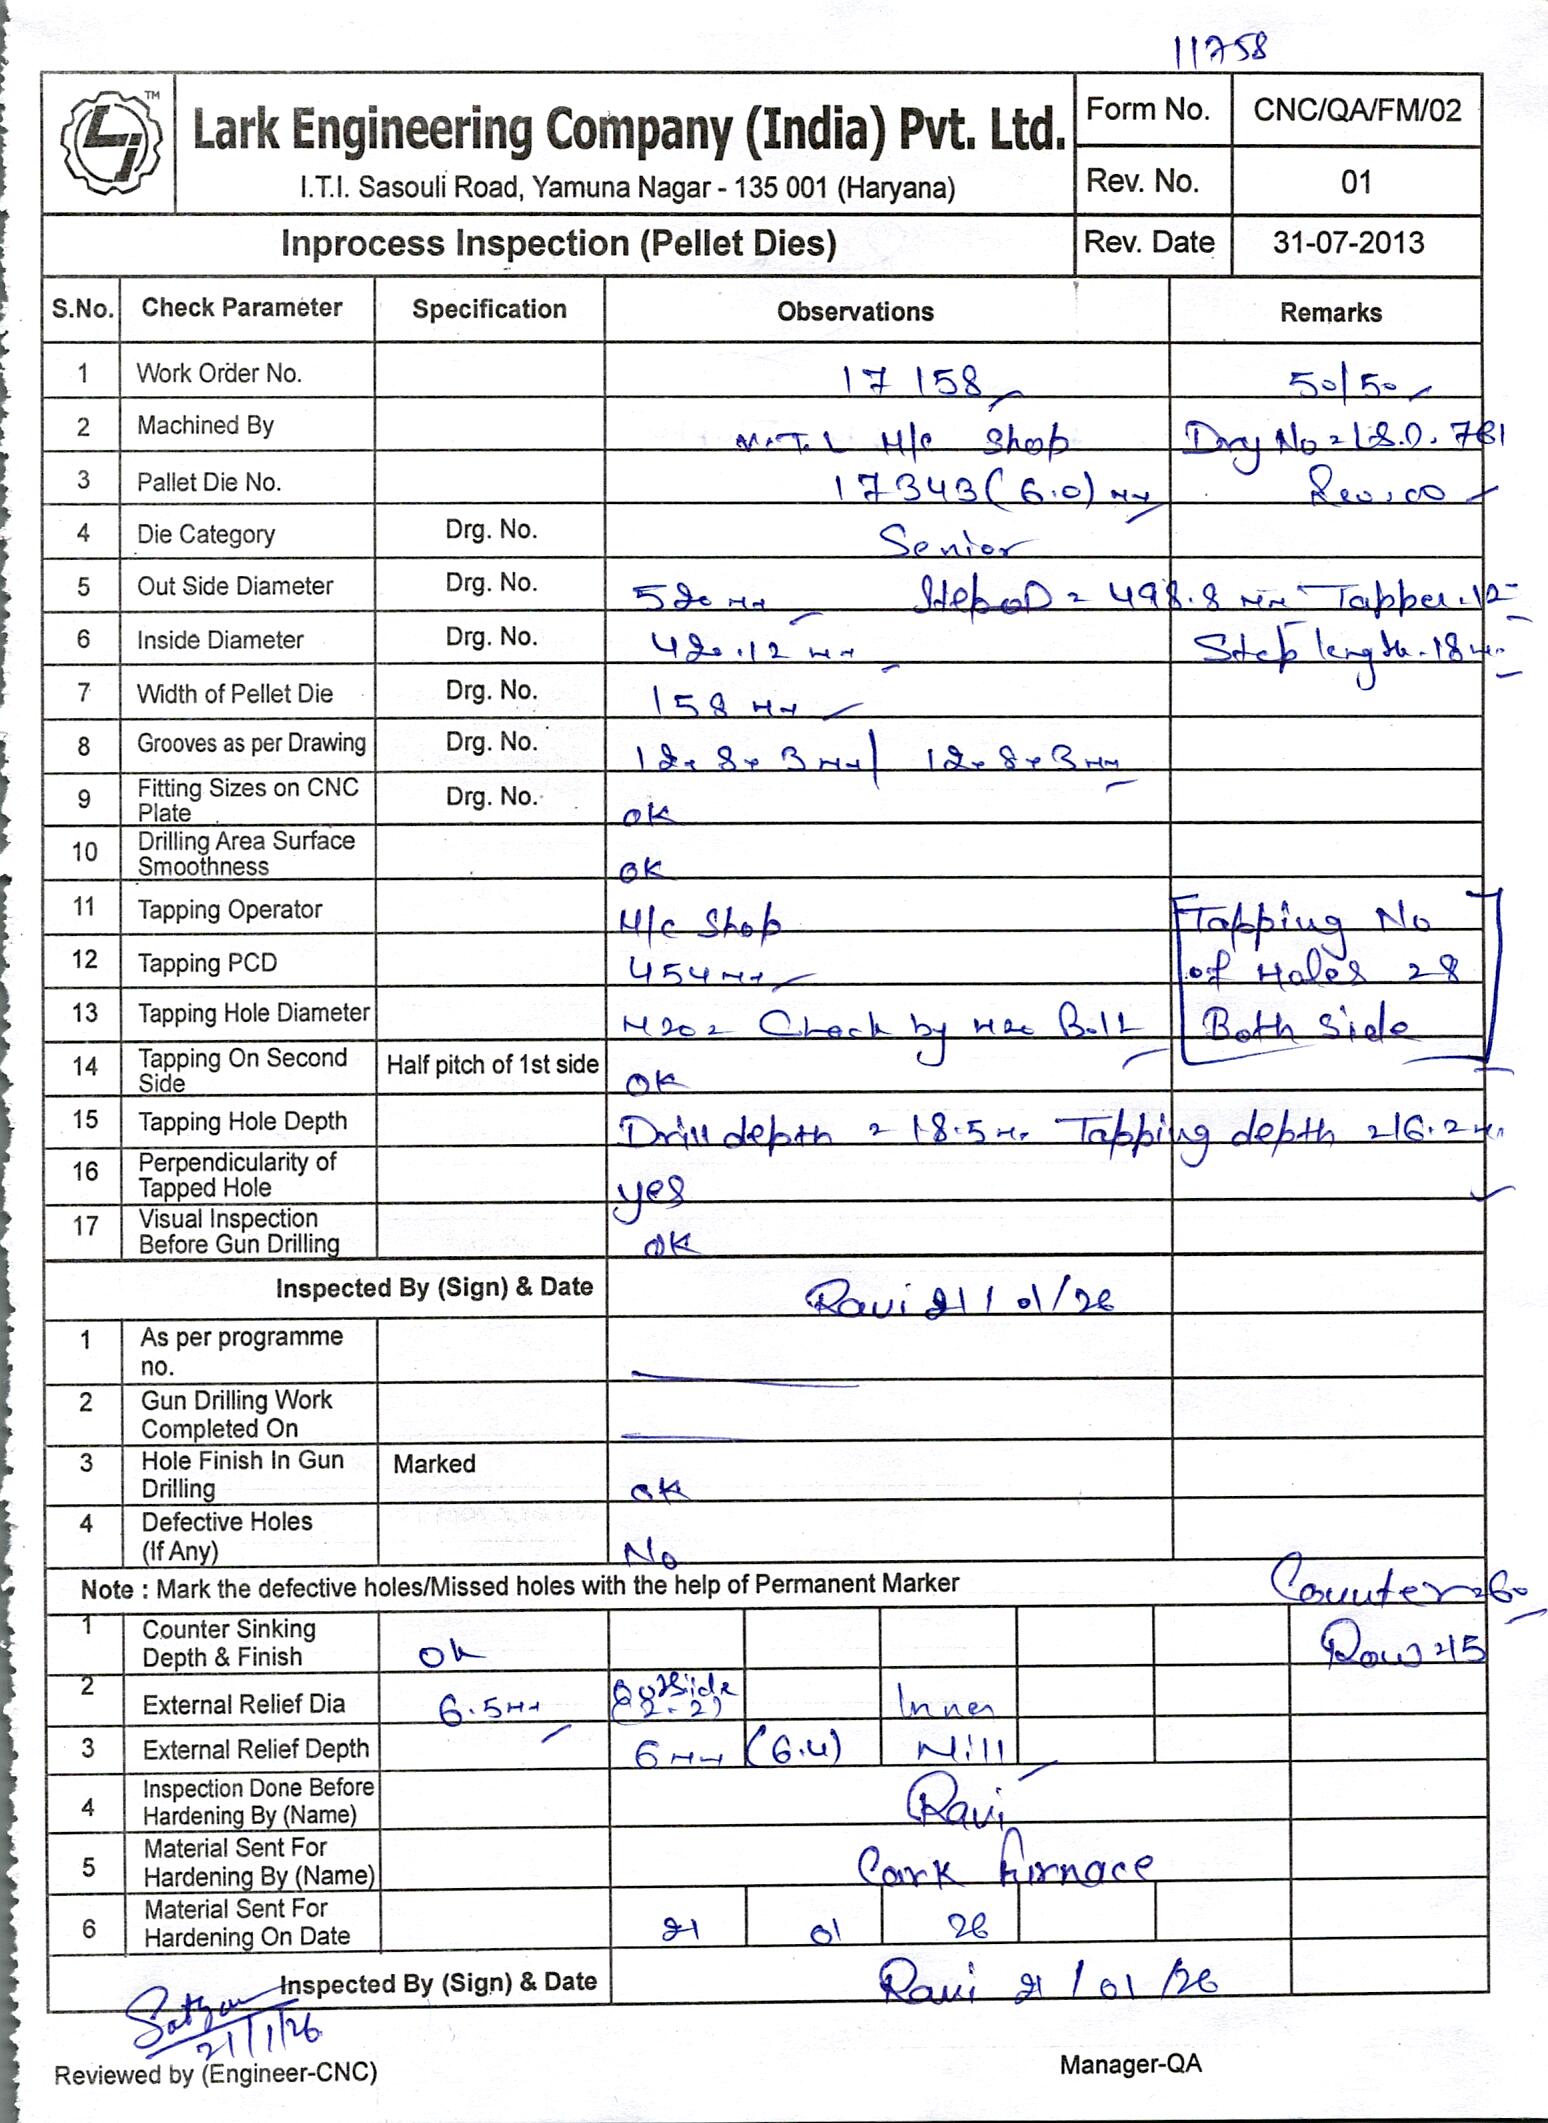 11758
TM
Lark Engineering Company (India) Pvt. Ltd.
I.T.I. Sasouli Road, Yamuna Nagar - 135 001 (Haryana)
Form No. CNC/QA/FM/02
Rev. No. 01
Inprocess Inspection (Pellet Dies) Rev. Date 31-07-2013
S.No. Check Parameter Specification Observations Remarks
1 Work Order No. 17158 50/50
2 Machined By M.T.L H/c Shop Drg No = L.S.D. 781
3 Pallet Die No. 17343 (6.0) mm Rev.00
4 Die Category Drg. No. Senior
5 Out Side Diameter Drg. No. 520 mm Step OD = 498.8 mm Tapper.12
6 Inside Diameter Drg. No. 420.12 mm Step length.18 mm
7 Width of Pellet Die Drg. No. 158 mm
8 Grooves as per Drawing Drg. No. 12×8×3 mm / 12×8×3 mm
9 Fitting Sizes on CNC Plate Drg. No. ok
10 Drilling Area Surface Smoothness ok
11 Tapping Operator H/c Shop Tapping No
12 Tapping PCD 454 mm of Holes = 8
13 Tapping Hole Diameter M20 = Check by M20 Bolt Both Side
14 Tapping On Second Side Half pitch of 1st side ok
15 Tapping Hole Depth Drill depth = 18.5 mm Tapping depth = 16.2 mm
16 Perpendicularity of Tapped Hole yes
17 Visual Inspection Before Gun Drilling ok
Inspected By (Sign) & Date Ravi 21/01/26
1 As per programme no.
2 Gun Drilling Work Completed On
3 Hole Finish In Gun Drilling Marked ok
4 Defective Holes (If Any) No
Note : Mark the defective holes/Missed holes with the help of Permanent Marker Counter = 60
1 Counter Sinking Depth & Finish ok Row = 15
2 External Relief Dia 6.5 mm Outside (2-2) Inner
3 External Relief Depth 6 mm (6.4) Nill
4 Inspection Done Before Hardening By (Name) Ravi
5 Material Sent For Hardening By (Name) Lark firnace
6 Material Sent For Hardening On Date 21 01 26
Inspected By (Sign) & Date Ravi 21/01/26
21/1/26
Reviewed by (Engineer-CNC) Manager-QA